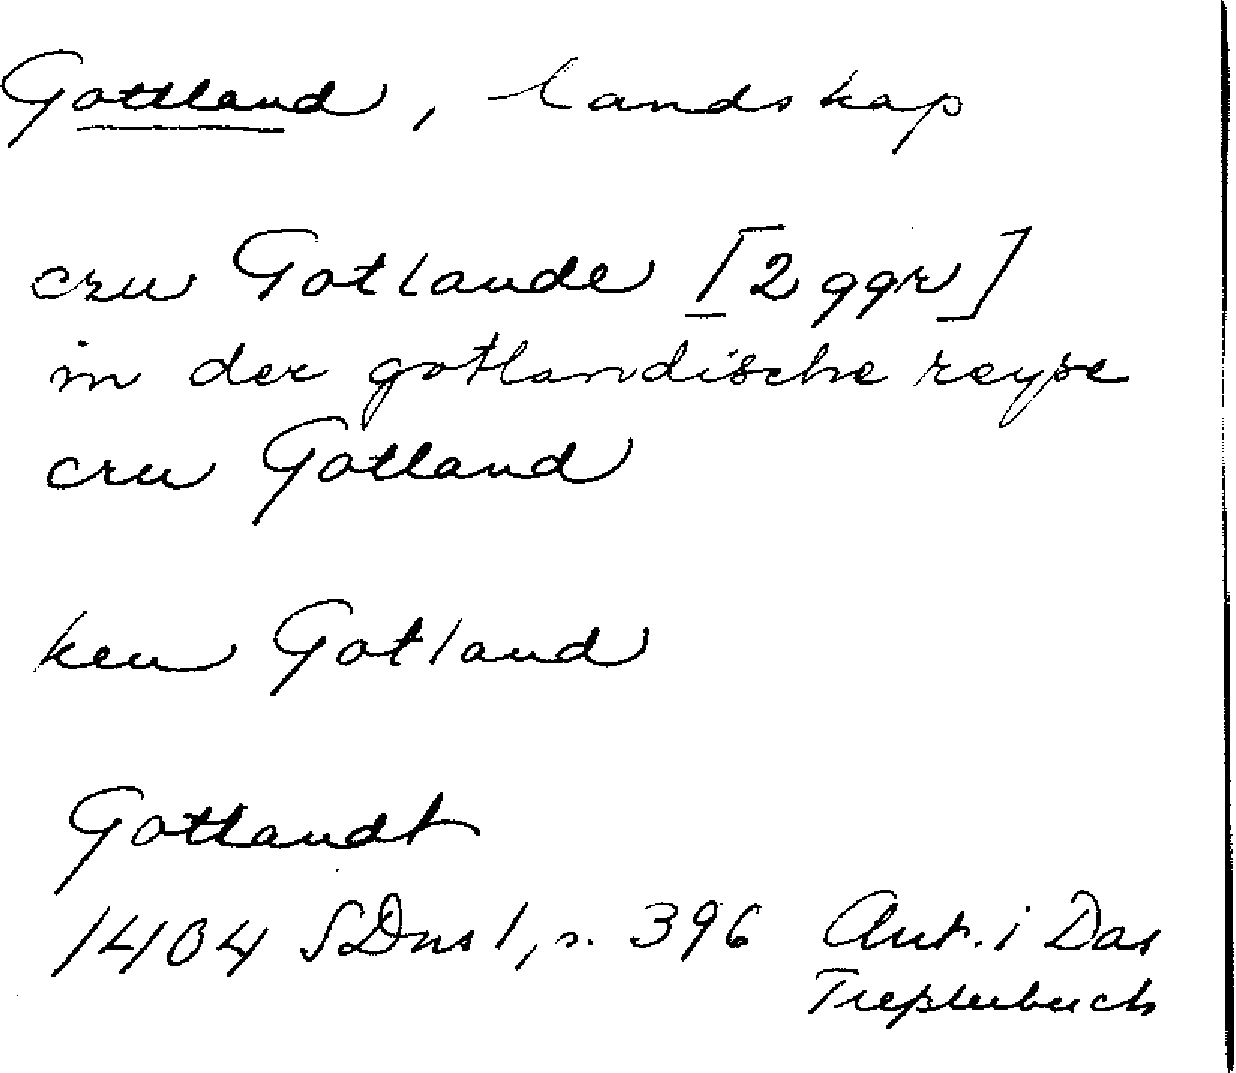 Gottland, landskap
czu Gotlande [2 ggr]
in der gotlandische reyse
czu Gotland
ken Gotland
Gotlandt
1404 SDns 1, s. 396 Ant. i Das
Tresslerbuch